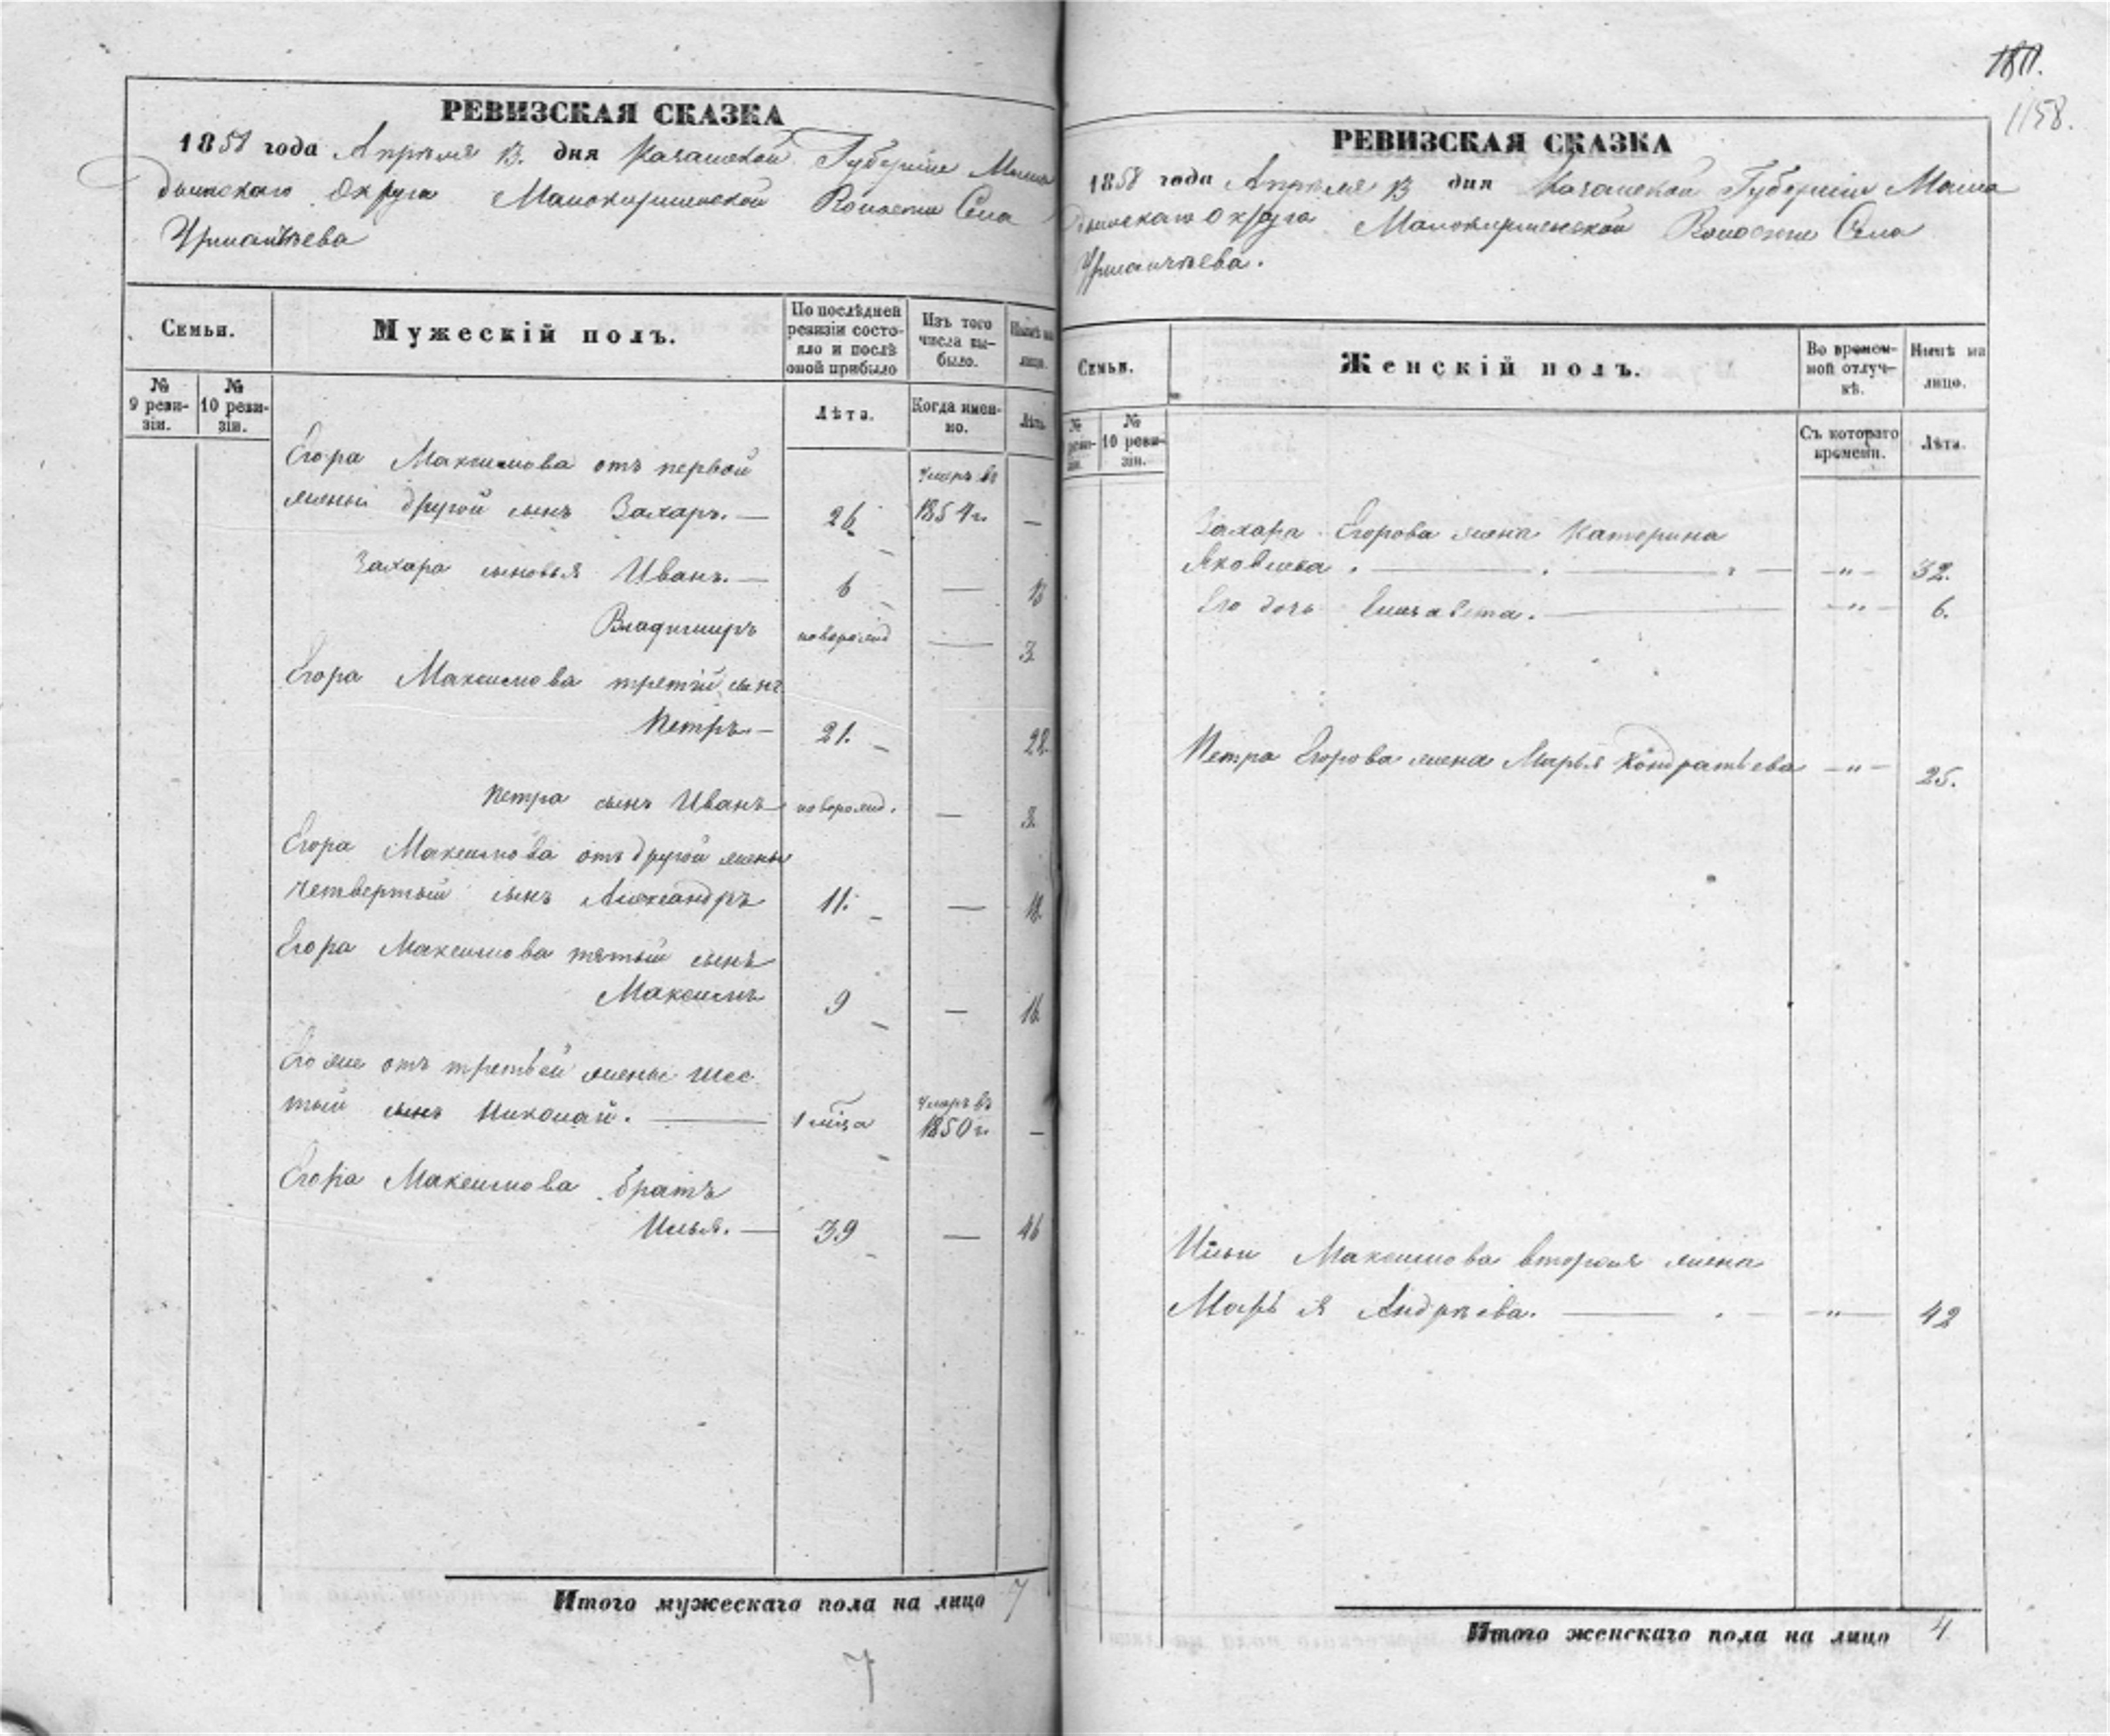 РЕВИЗСКАЯ СКАЗКА
1858 года Апрѣля 13. дня Казанской Губерніи Мама
дышскаго Округа Мамокирменской Волости Села
Урманчѣева
Семьи.
Мужескій полъ.
По послѣдней ревизіи состояло и послѣ оной прибыло
Изъ того числа выбыло.
Нынѣ на лицо.
№ 9 реви-зіи.
№ 10 реви-зіи.
Лѣта.
Когда имен-но.
Лѣта.
Егора Максимова отъ первой
жены другой сынъ Захаръ. — 26 умеръ въ 1854 г. —
Захара сыновья Иванъ. — 6 — 13
Владимиръ новорожд — 3
Егора Максимова третій сынъ
Петръ. — 21. 28
Петра сынъ Иванъ новорожд. — 3
Егора Максимова отъ другой жены
четвертый сынъ Александръ 11. — 18
Егора Максимова пятый сынъ
Максимъ 9 — 16
Его же отъ третьей жены шес
тый сынъ Николай. — 1 мѣца умеръ въ 1850 г. —
Егора Максимова братъ
Илья. — 39 — 46
Итого мужескаго пола на лицо 7
7
1158.
РЕВИЗСКАЯ СКАЗКА
1858 года Апрѣля 13 дня Казанской Губерніи Мама
дышскаго Округа Мамокирменской Волости Села
Урманчѣева.
Семьи.
Женскій полъ.
Во времен-ной отлуч-кѣ.
Нынѣ на лицо.
№ реви-зіи.
№ 10 реви-зіи.
Съ котораго времени.
Лѣта.
Захара Егорова жена Катерина
Яковлева. — " — 32.
Его дочь Елизавета. — " — 6.
Петра Егорова жена Марья Кондратьева — " — 25.
Ильи Максимова вторая жена
Марья Андрѣева. — " — 42
Итого женскаго пола на лицо 4